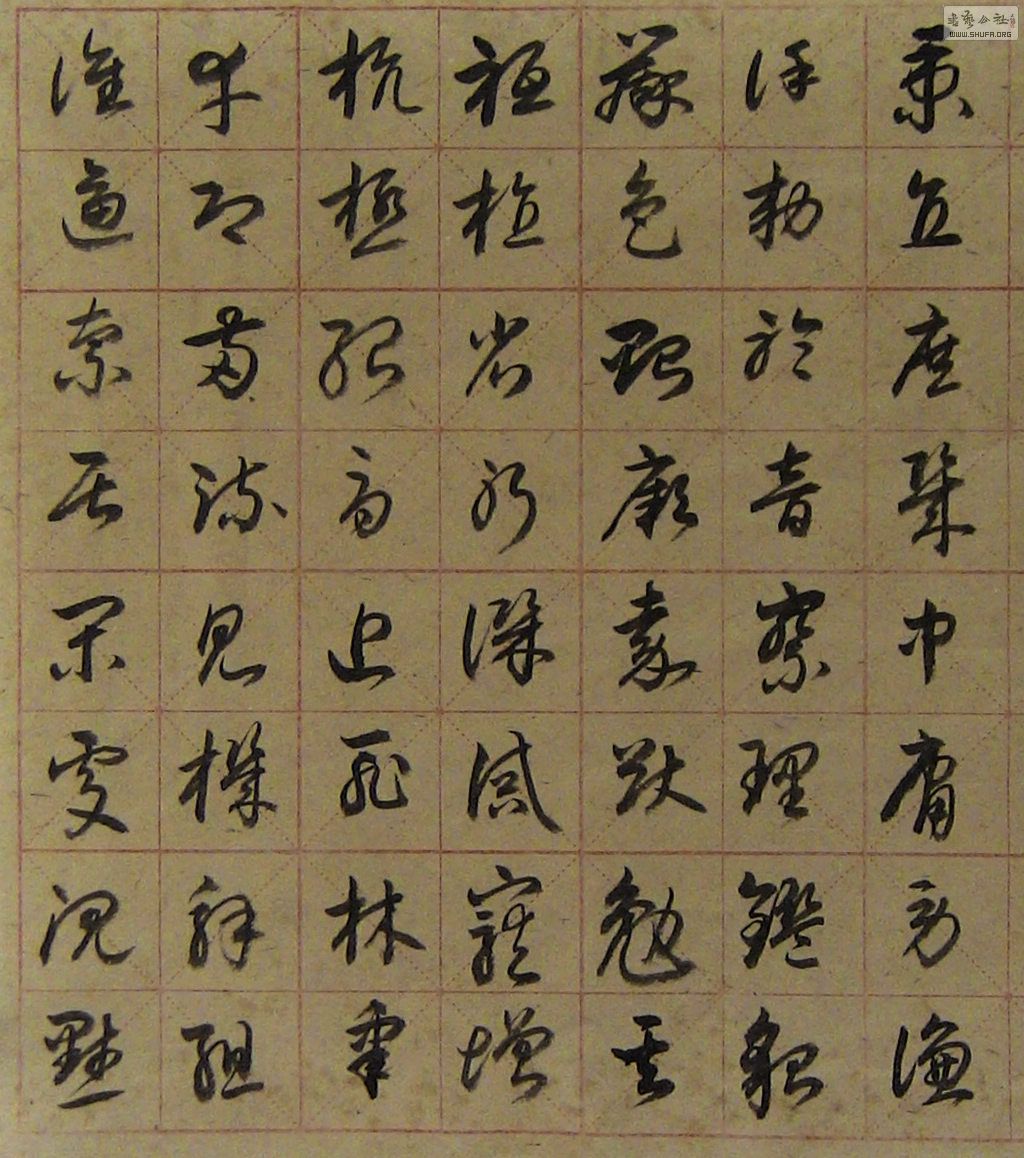 秉直庶幾中庸勞謙
謹勅聆音察理鑑貌
辨色貽厥嘉猷勉其
祗植省躬譏誡寵增
抗極殆辱近恥林皋
幸即兩疏見機解組
誰逼索居閑處沉默
書藝公社
WWW.SHUFA.ORG